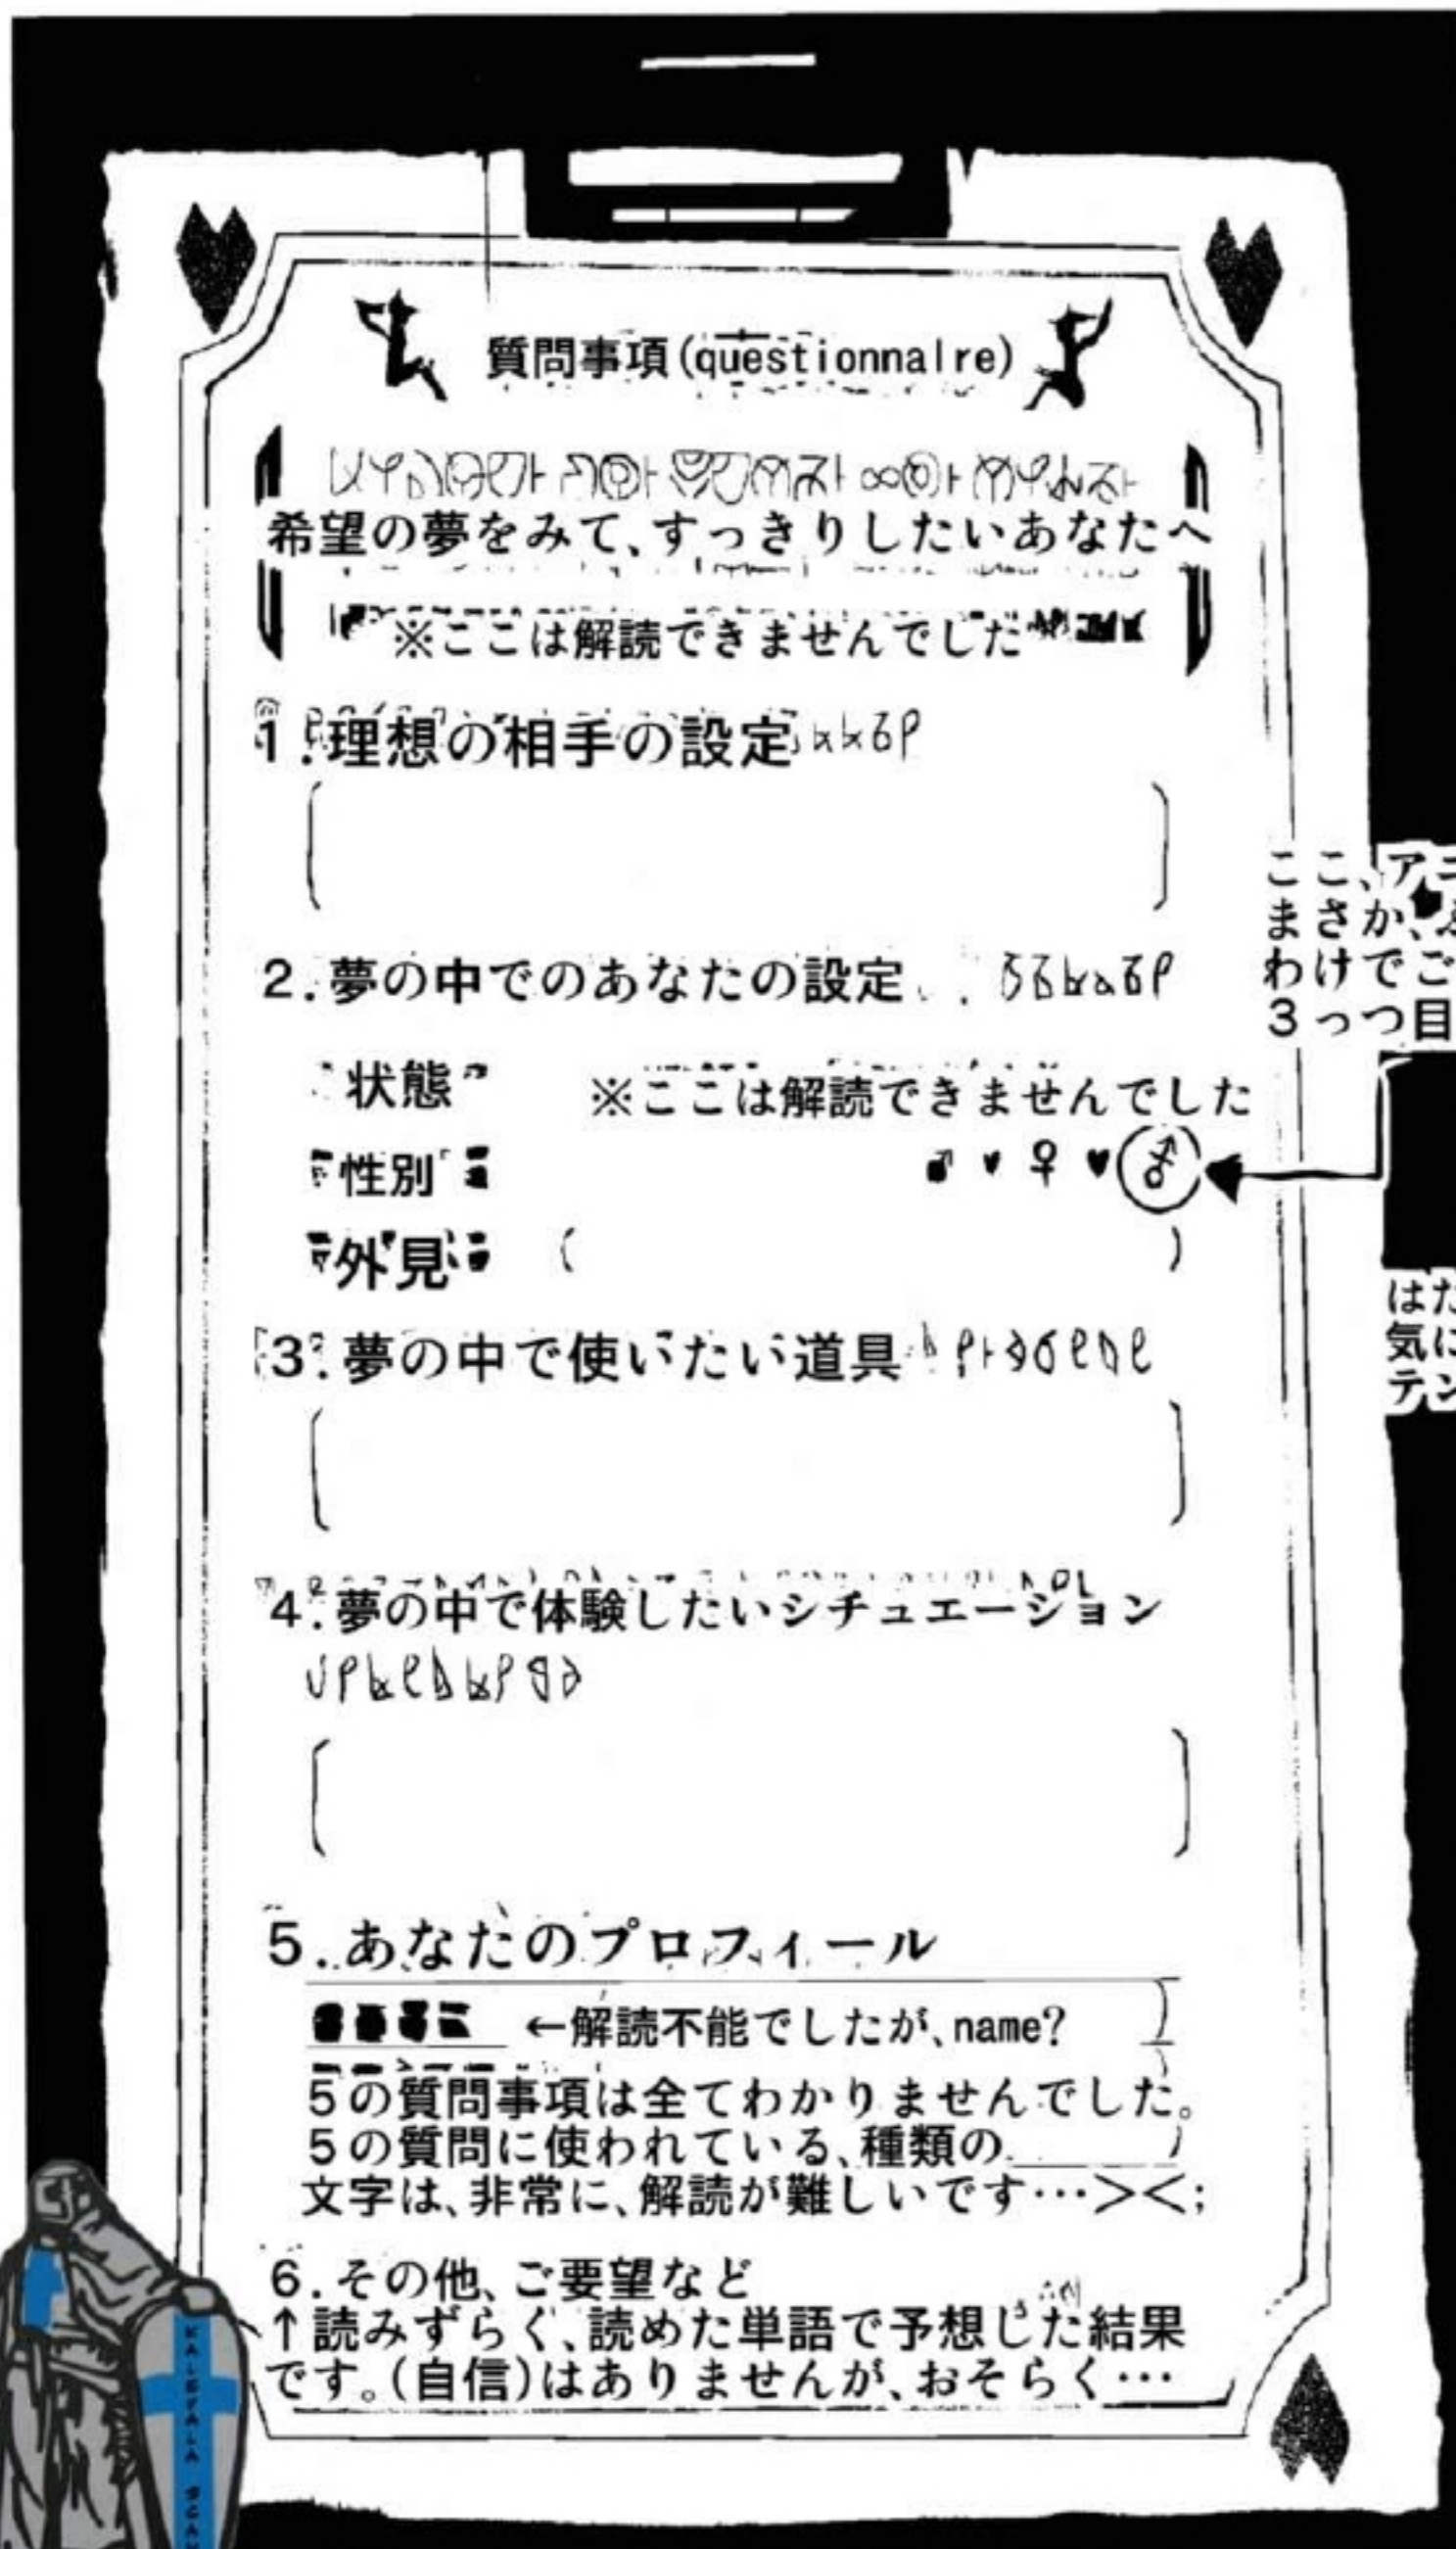 質問事項(questionnaire)
希望の夢をみて、すっきりしたいあなたへ
※ここは解読できませんでした
1.理想の相手の設定
2.夢の中でのあなたの設定
状態 ※ここは解読できませんでした
性別 ♂ ♥ ♀ ♥ ⚦
外見 ( )
3.夢の中で使いたい道具
4.夢の中で体験したいシチュエーション
5.あなたのプロフィール
←解読不能でしたが、name?
5の質問事項は全てわかりませんでした。
5の質問に使われている、種類の
文字は、非常に、解読が難しいです…><;
6.その他、ご要望など
↑読みずらく、読めた単語で予想した結果
です。(自信)はありませんが、おそらく…
ここ、ア
まさか、
わけでご
3っつ目
はた
気に
テン
KALEVALA SCAN